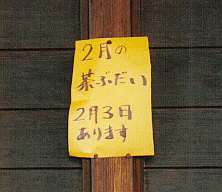 2月の
茶ぶだい
2月3日
あります